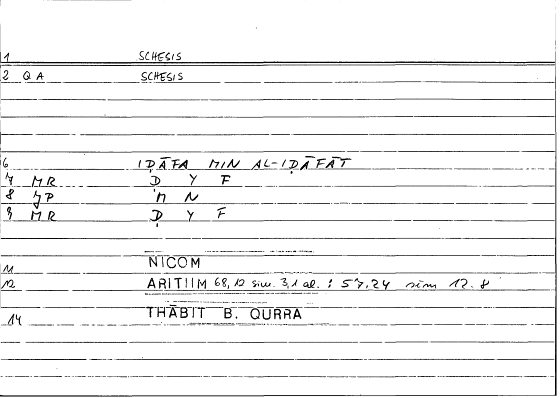 1 SCHESIS
2 QA SCHESIS
6 IḌĀFA MIN AL-IḌĀFĀT
7 MR Ḍ Y F
8 JP M N
9 MR Ḍ Y F
11 NICOM
12 ARITIIM 68,12 sim. 3,1 al. : 57.24 sim 12.8
14 THĀBIT B. QURRA